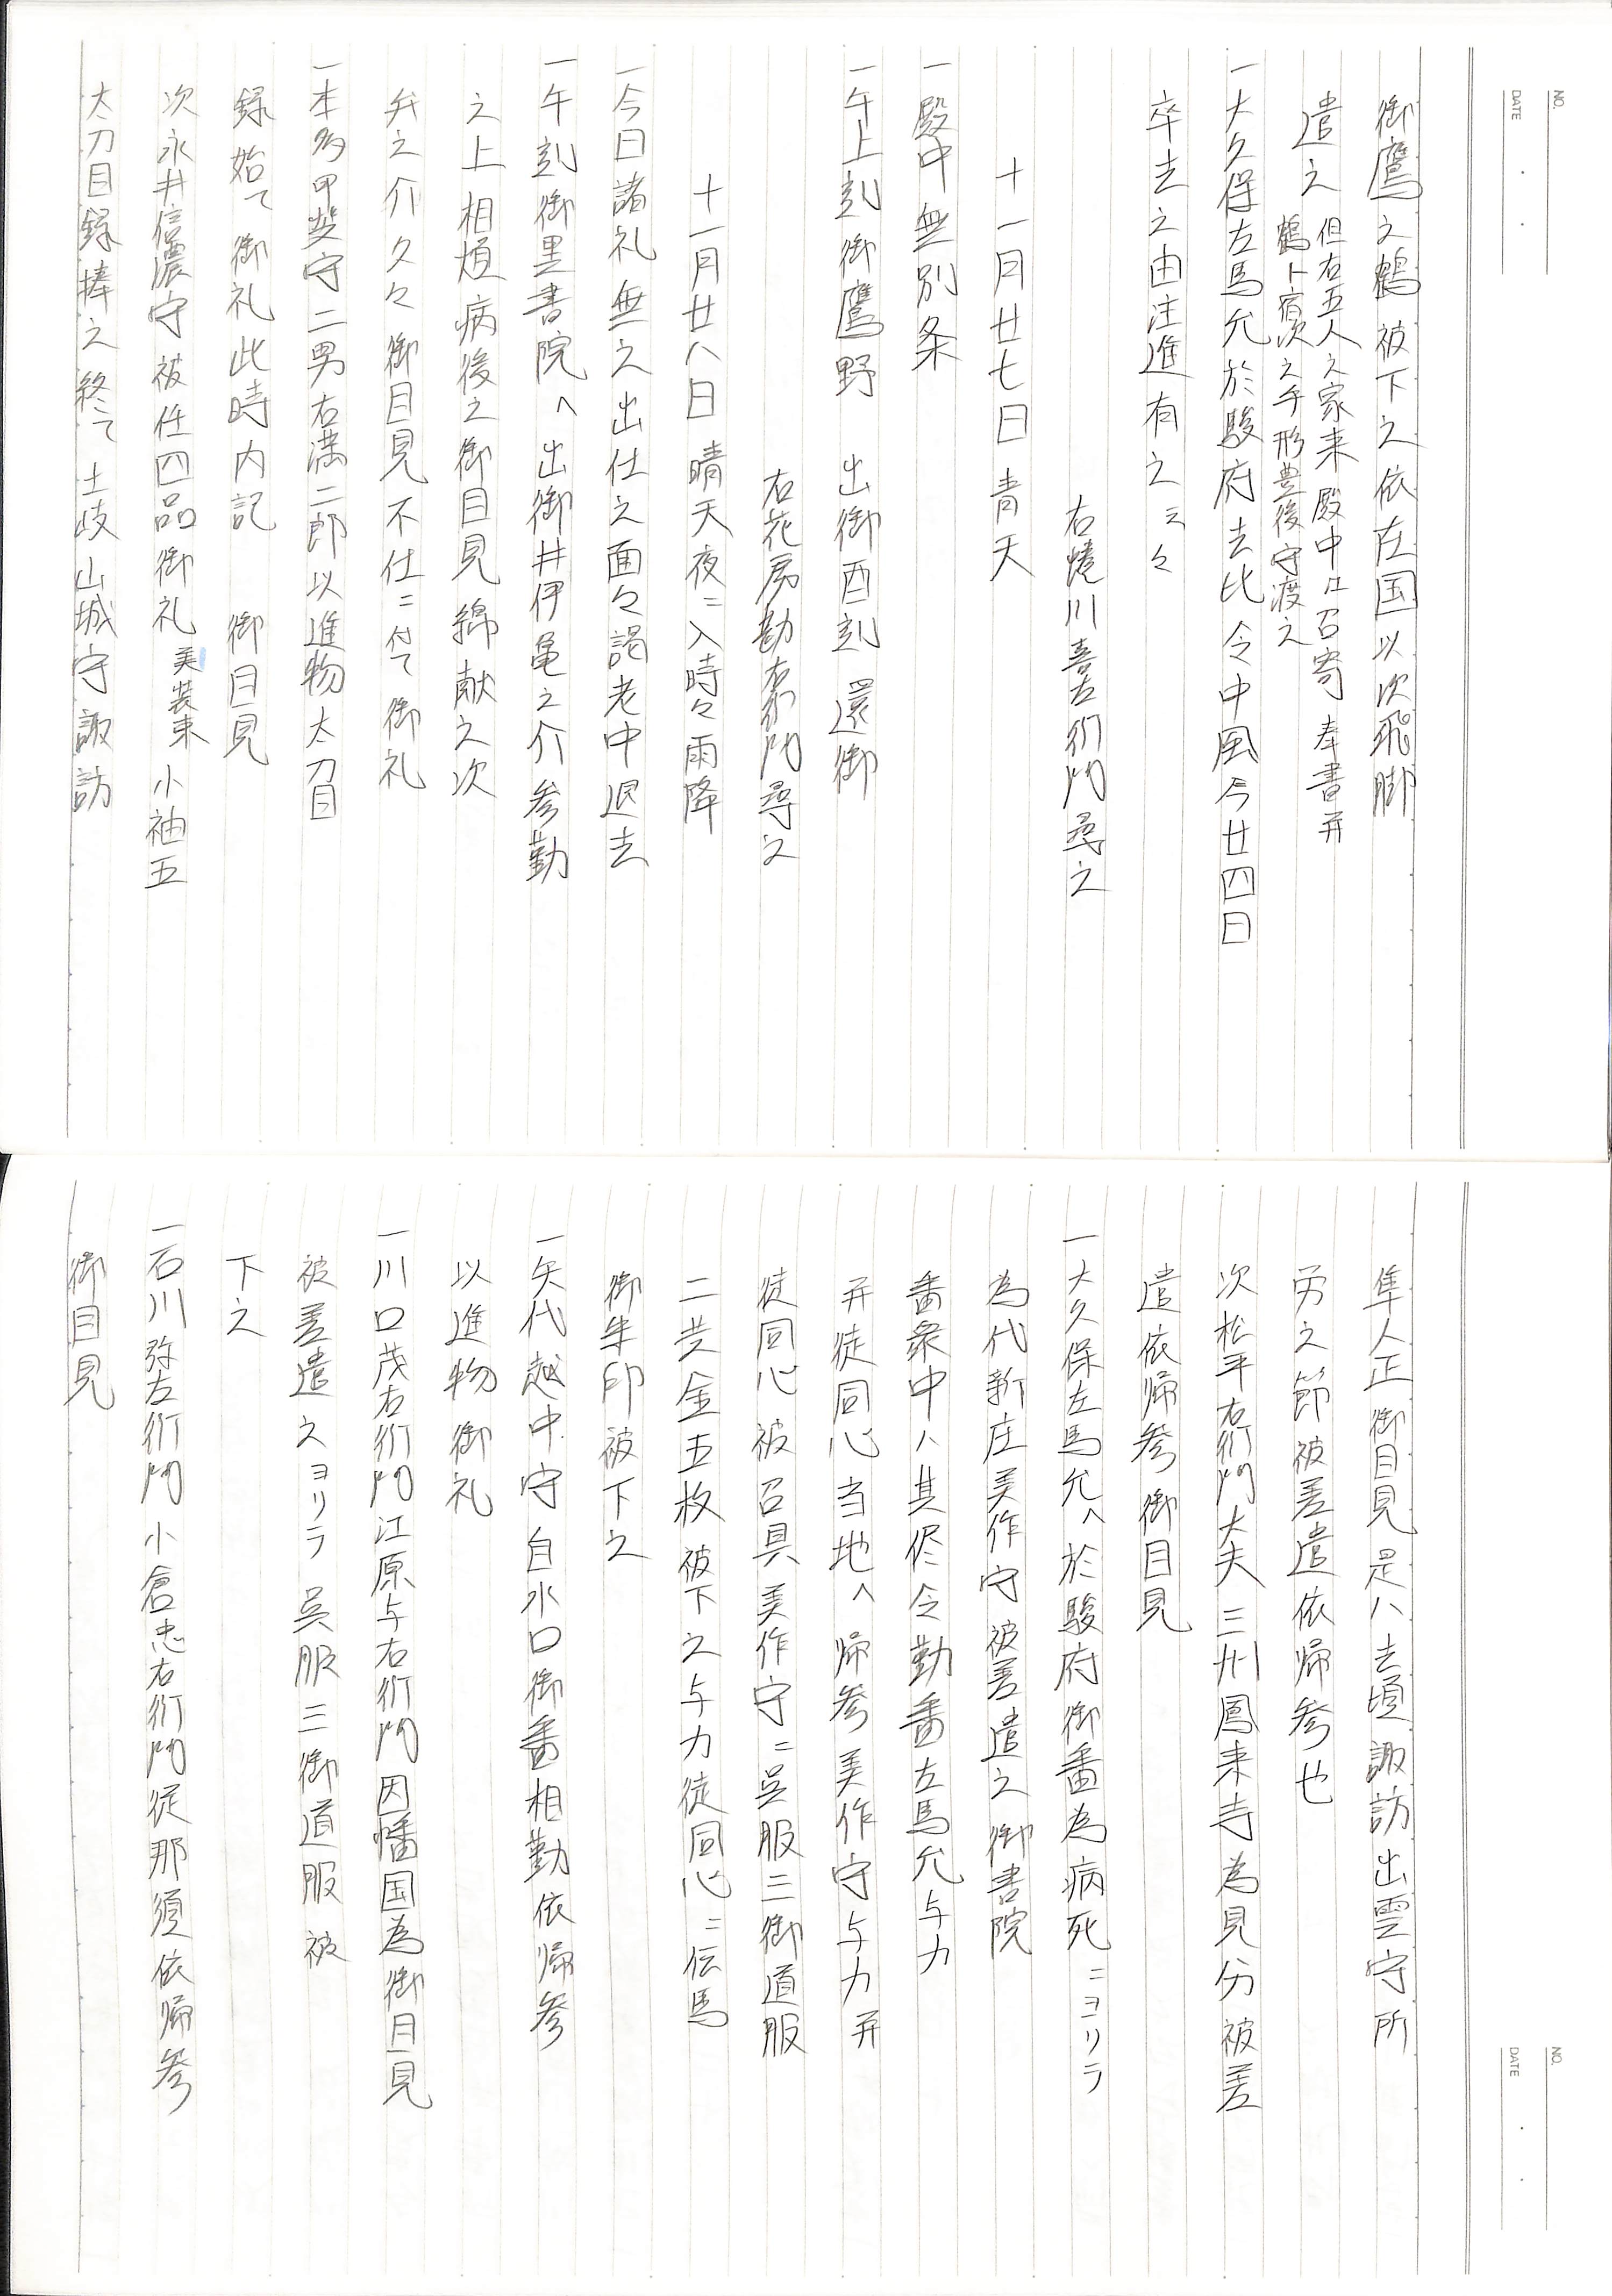 NO.
DATE
御鷹之鶴 被下之依在国以次飛脚
遣之 但右五人之家来 殿中江召寄 奉書并
鶴ト宿次之手形豊後守渡之
一大久保左馬允於駿府去比令中風今廿四日
卒去之由注進有之云々
右蜷川喜左衛門尋之
十一月廿七日 青天
一殿中無別条
一午上刻御鷹野 出御酉刻還御
右花房勘右衛門尋之
十一月廿八日 晴天夜ニ入時々雨降
一今日諸礼無之出仕之面々謁老中退去
一午刻御黒書院ヘ 出御井伊亀之介参勤
之上相煩病後之御目見綿献之次
弁之介久々御目見不仕ニ付て御礼
一本多甲斐守二男右満二郎以進物太刀目
録始て御礼此時内記 御目見
次永井信濃守被任四品御礼 美装束 小袖五
太刀目録捧之終て土岐山城守諏訪
NO.
DATE
隼人正御目見是ハ去頃諏訪出雲守所
労之節被差遣依帰参也
次松平右衛門大夫三州鳳来寺為見分被差
遣依帰参御目見
一大久保左馬允ヘ於駿府御番為病死ニヨリテ
為代新庄美作守被差遣之御書院
番衆中ハ其侭令勤番左馬允与力
并徒同心当地ヘ帰参美作守与力并
徒同心被召具美作守ニ呉服三御道服
二并金五枚被下之与力徒同心ニ伝馬
御朱印被下之
一矢代越中守自水口御番相勤依帰参
以進物御礼
一川口茂右衛門江原与右衛門因幡国為御目見
被差遣之ヨリテ呉服三御道服被
下之
一石川弥左衛門小倉忠右衛門従那須依帰参
御目見